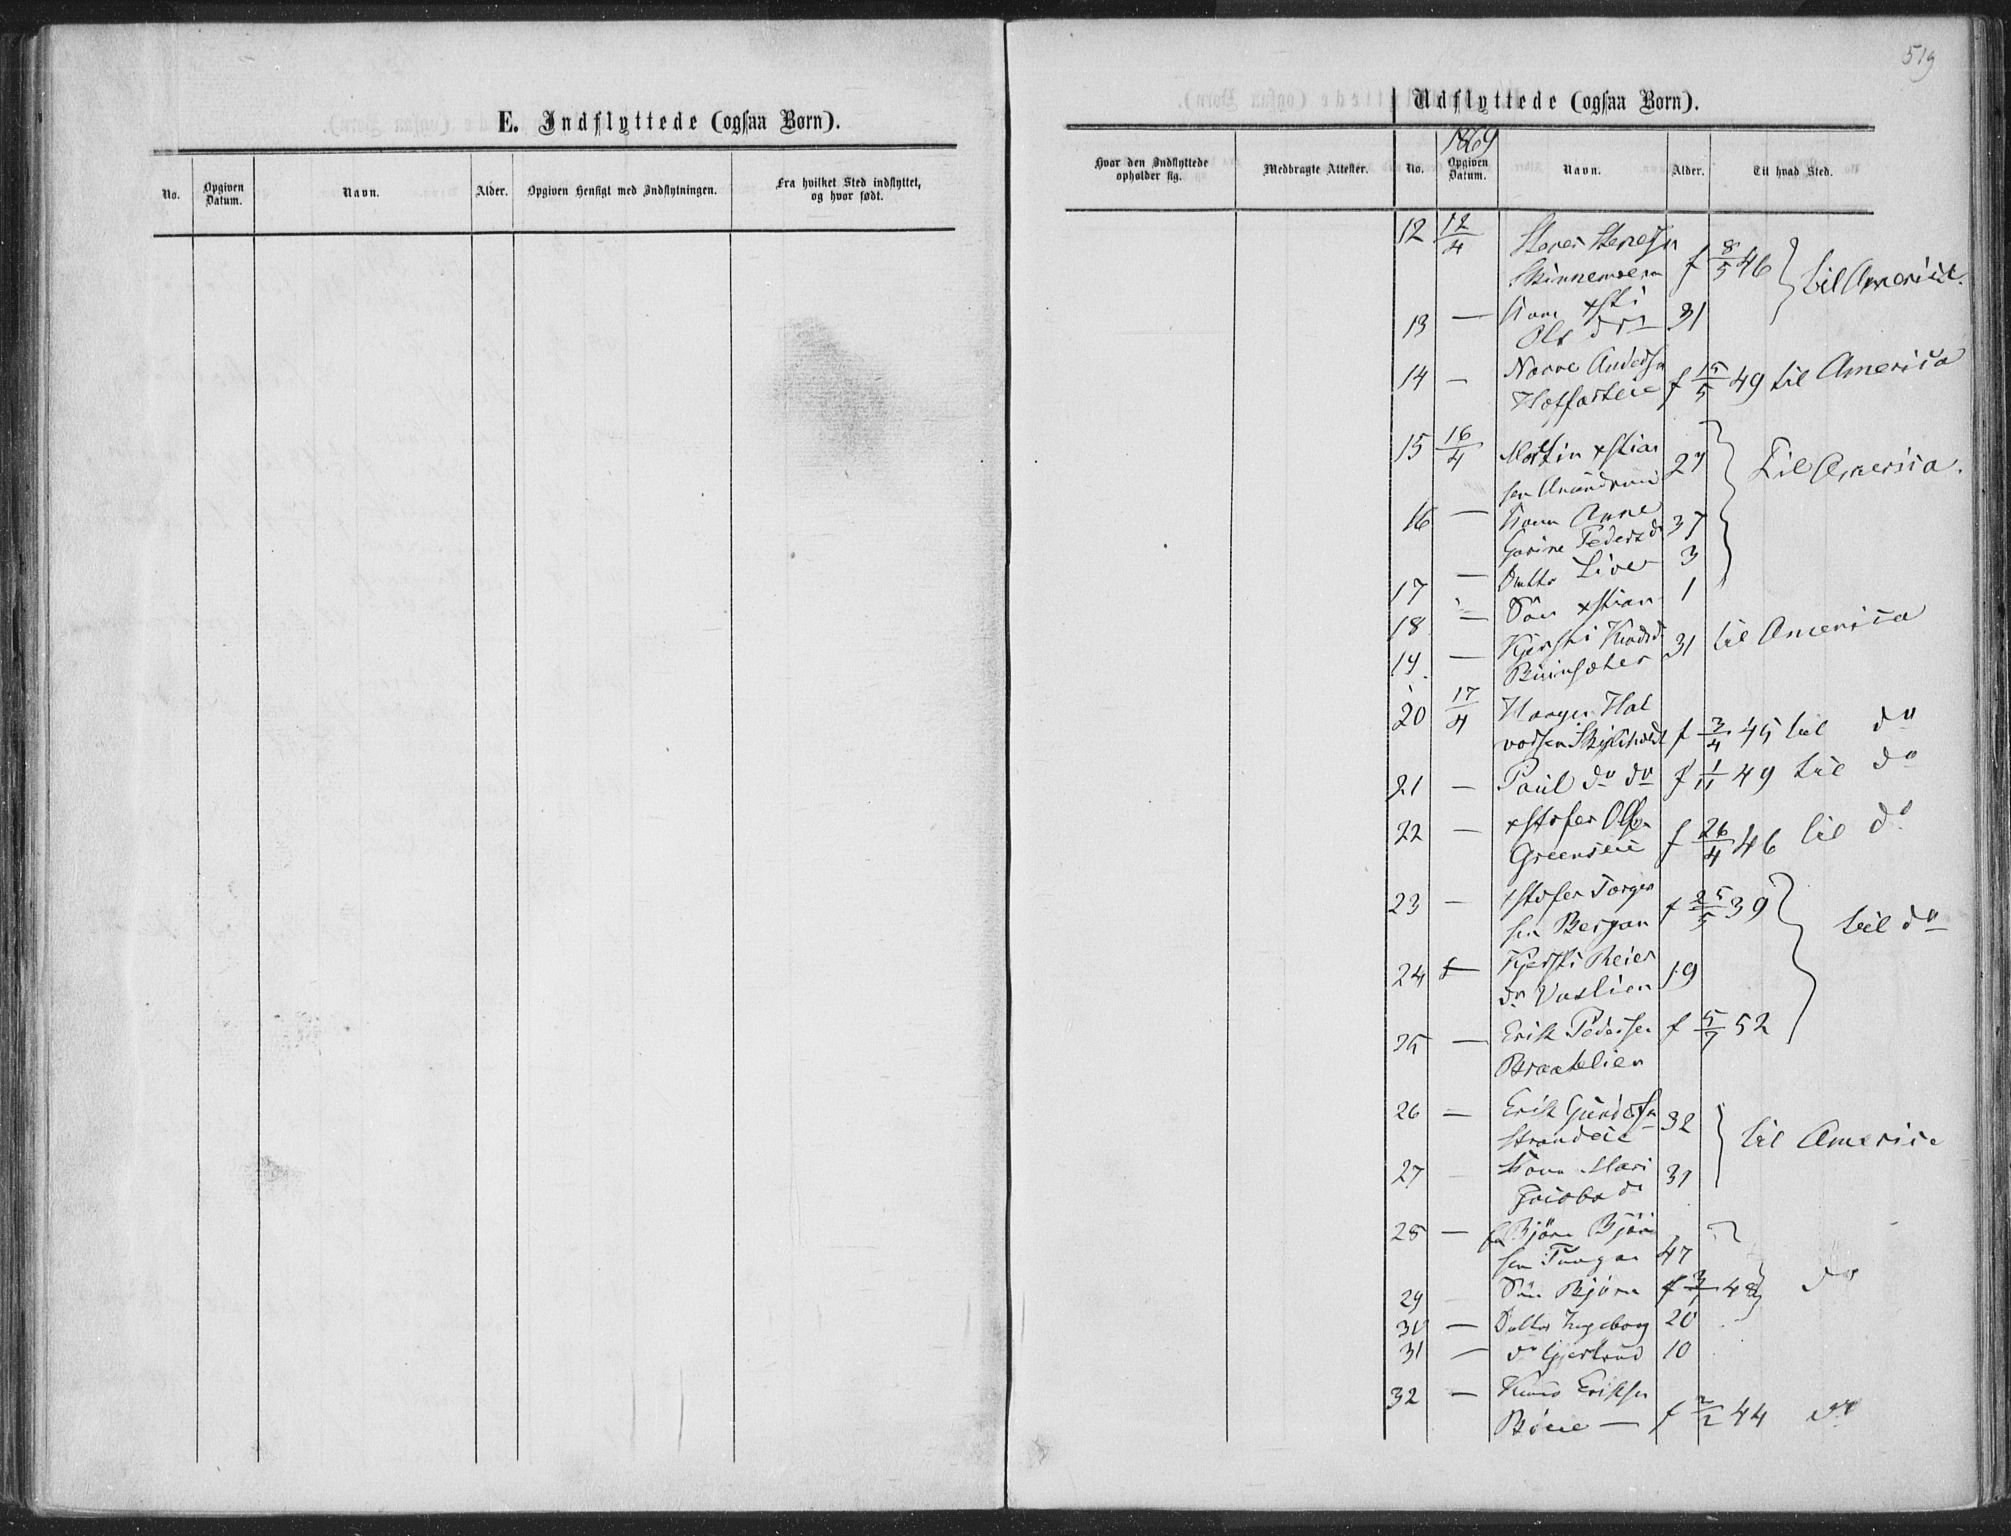 519
E. Indflyttede (ogsaa Børn).
No. Opgiven Datum. Navn. Alder. Opgiven Hensigt med Indflytningen. Fra hvilket Sted indflyttet, og hvor født.
Udflyttede (ogsaa Børn).
1869
Hvor den Indflyttede opholder sig. Medbragte Attester. No. Opgiven Datum. Navn. Alder. Til hvad Sted.
12 12/4
f 8/5 46 til America.
13 — Kone xsti
Ols dr 31
14 — Narve Andersen
f 15/5 49 til America
15 16/4 Martin xstian
sen 27 Til America.
16 — Kone Anne
Karine Pedersdr 37
17 — Datter Live 3
18 — Søn xstian 1
19 — Kjersti Knudsd 31 til America
20 17/4 Haagen Hal
vorsen f 3/4 45 til do
21 — Paul do do f 1/11 49 til do
22 — xstofer Olsen
Greenseie f 26/4 46 til do
23 — xstofer Torger
sen Bergan f 25/5 39 til do
24 — Kjersti Reier
dr Vaslien 19
25 — Erik Pedersen f 5/7 52
Braatelien
26 — Erik Gundersen
Strandeie 32 til America
27 Kone Mari
Jacobs dr 31
28 — Bjørn Bjørn
sen Tungen 47
29 Søn Bjørn f 3/7 48 do
30 — Datter Ingeborg 20
31 — do Gjertrud 10
32 — Knud Eriksen
Bøeie — f 2/2 44 do